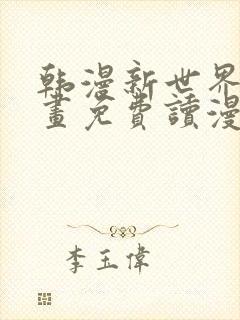 韩漫新世界
畫免費讀漫
李玉偉